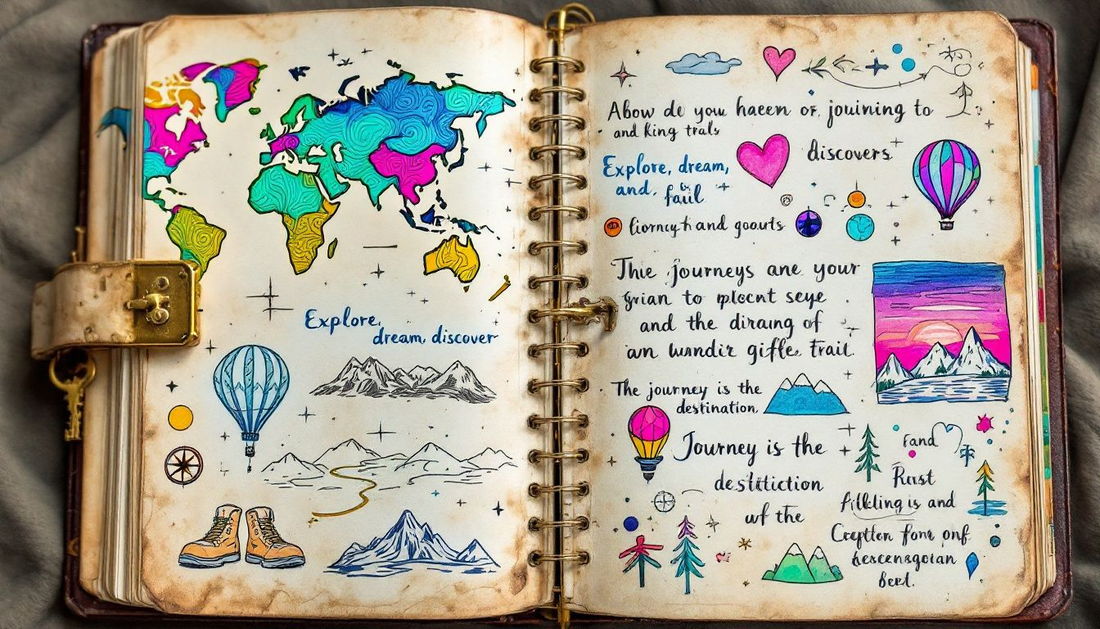 Explore,
dream, discover
Abow de you haeen or jouining to
and King trals
Explore, dream,
and, fail
discovers
and goouts
The journeys are your
grian to plocnt seye
and the diraung of
an wundir giffle, Trail.
The journey is the
destination,
Journey is the
destitiction
wf the
Fand
Rust
is and
Creften fone onf
Beel.